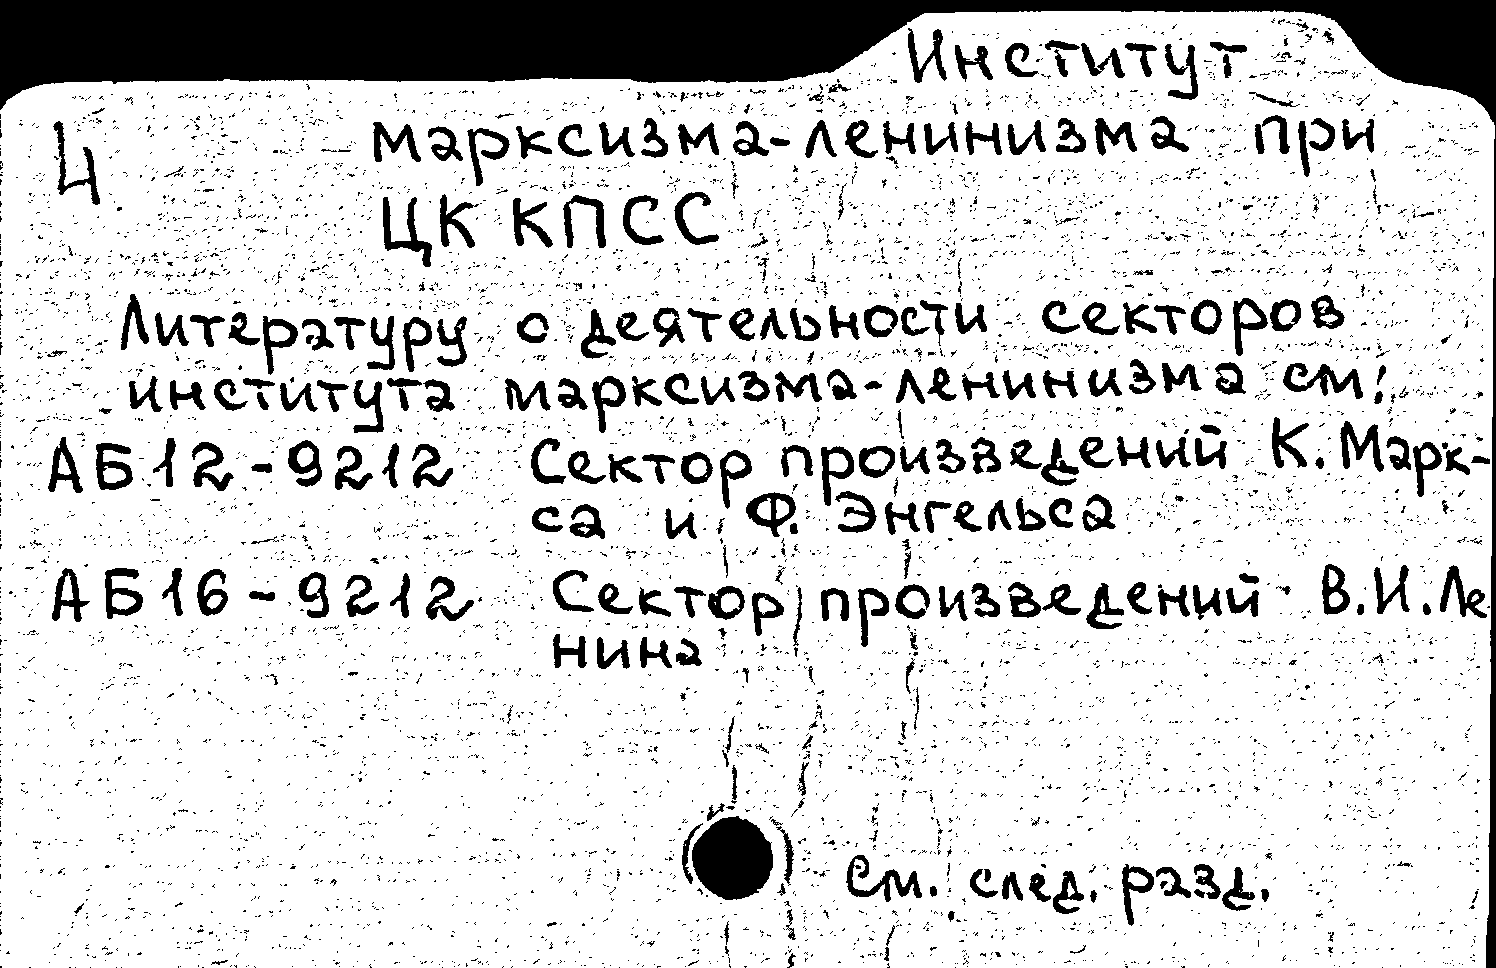 Институт
4 марксизма-ленинизма при
ЦК КПСС
Литературу о деятельности секторов
института марксизма-ленинизма см:
АБ12-9212 Сектор произведений К. Марк-
са и Ф. Энгельса
АБ16-9212 Сектор произведений В.И.Ле
нина
См. след. разд.